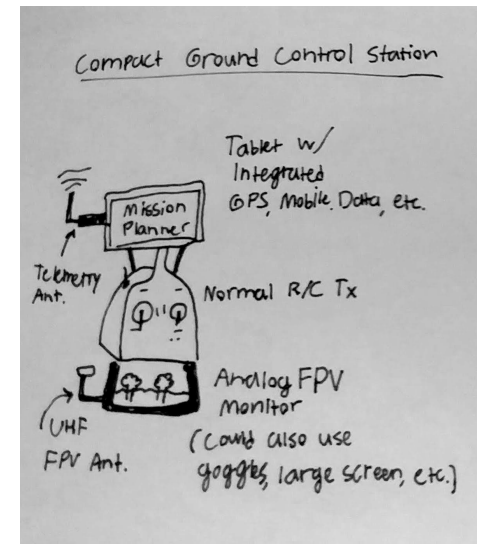 Compact Ground Control Station
Tablet w/
Integrated
GPS, Mobile, Data, etc.
Mission
Planner
Telemetry
Ant.
Normal R/C Tx
Analog FPV
Monitor
(Could also use
goggles, large screen, etc.)
UHF
FPV Ant.